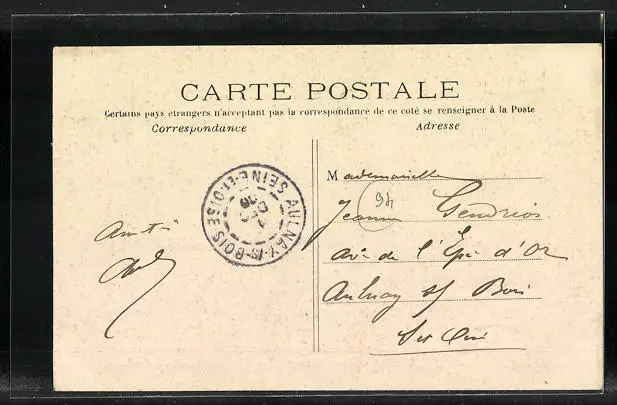 CARTE POSTALE
Certains pays etrangers n'acceptant pas la correspondance de ce coté se renseigner à la Poste
Correspondance
Adresse
Mademoiselle
94
Jeanne Gendrios
Avue de l'Epi d'Or
Aulnay s/ Bois
Set Oise
Amitié
AULNAY-S-BOIS
SEINE-ET-OISE